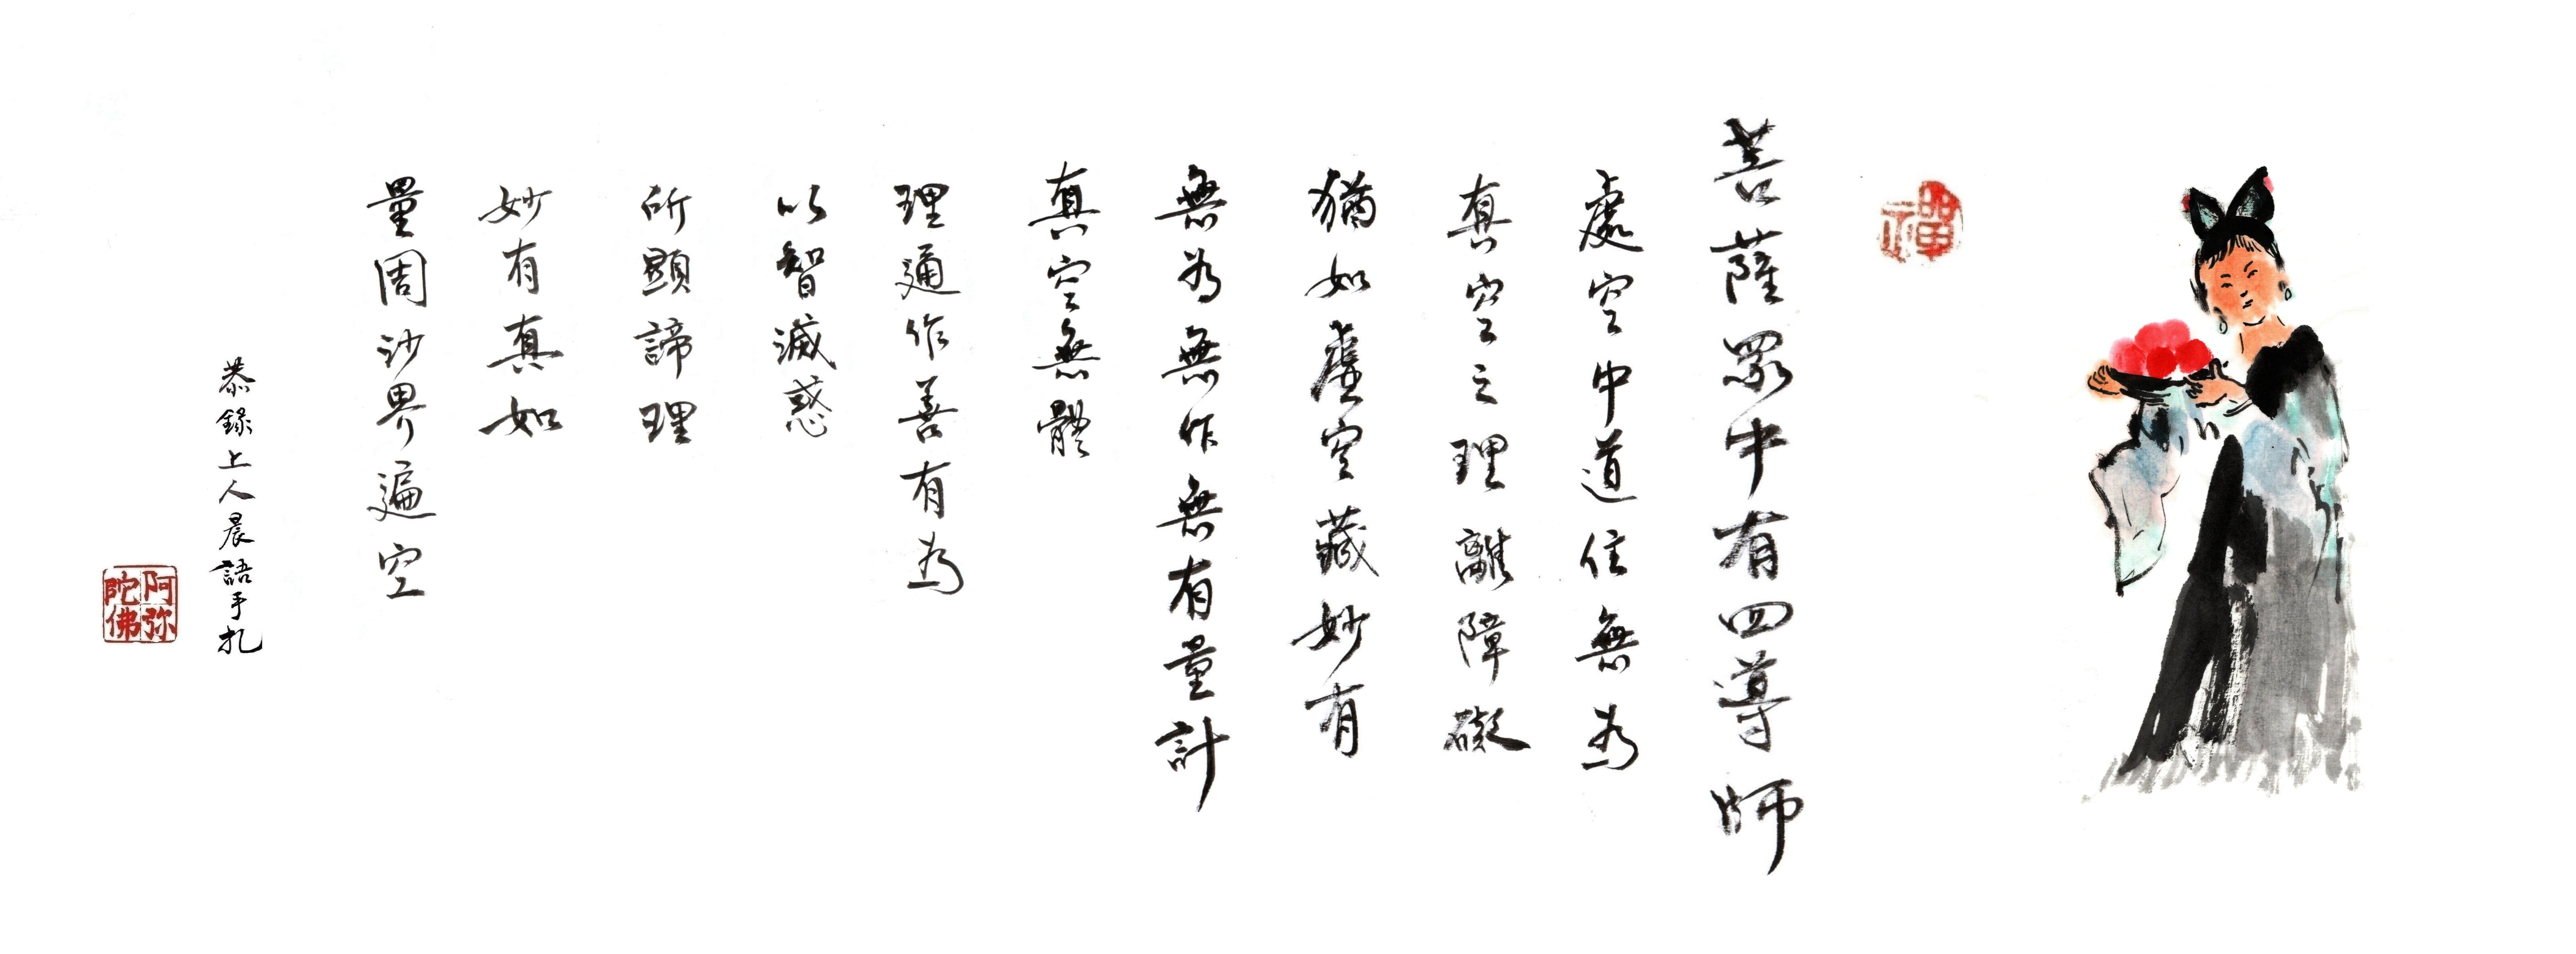 禪
菩薩眾中有四導師
處空中道住無為
真空之理離障礙
猶如虛空藏妙有
無為無作無有量計
真空無體
理通作善有為
以智滅惑
所顯諦理
妙有真如
量周沙界遍空
恭錄上人晨語手札
阿弥陀佛